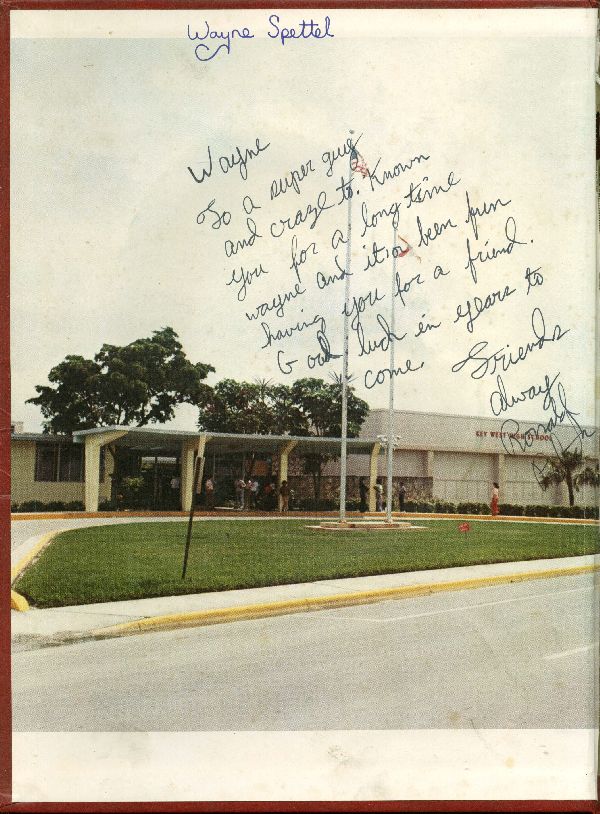 Wayne Spettel
Wayne
To a super guy
and craze to. Known
you for a long time
wayne and it's been fun
having you for a friend.
Good luck in years to
come. Friends
always
Ronald
KEY WEST HIGH SCHOOL